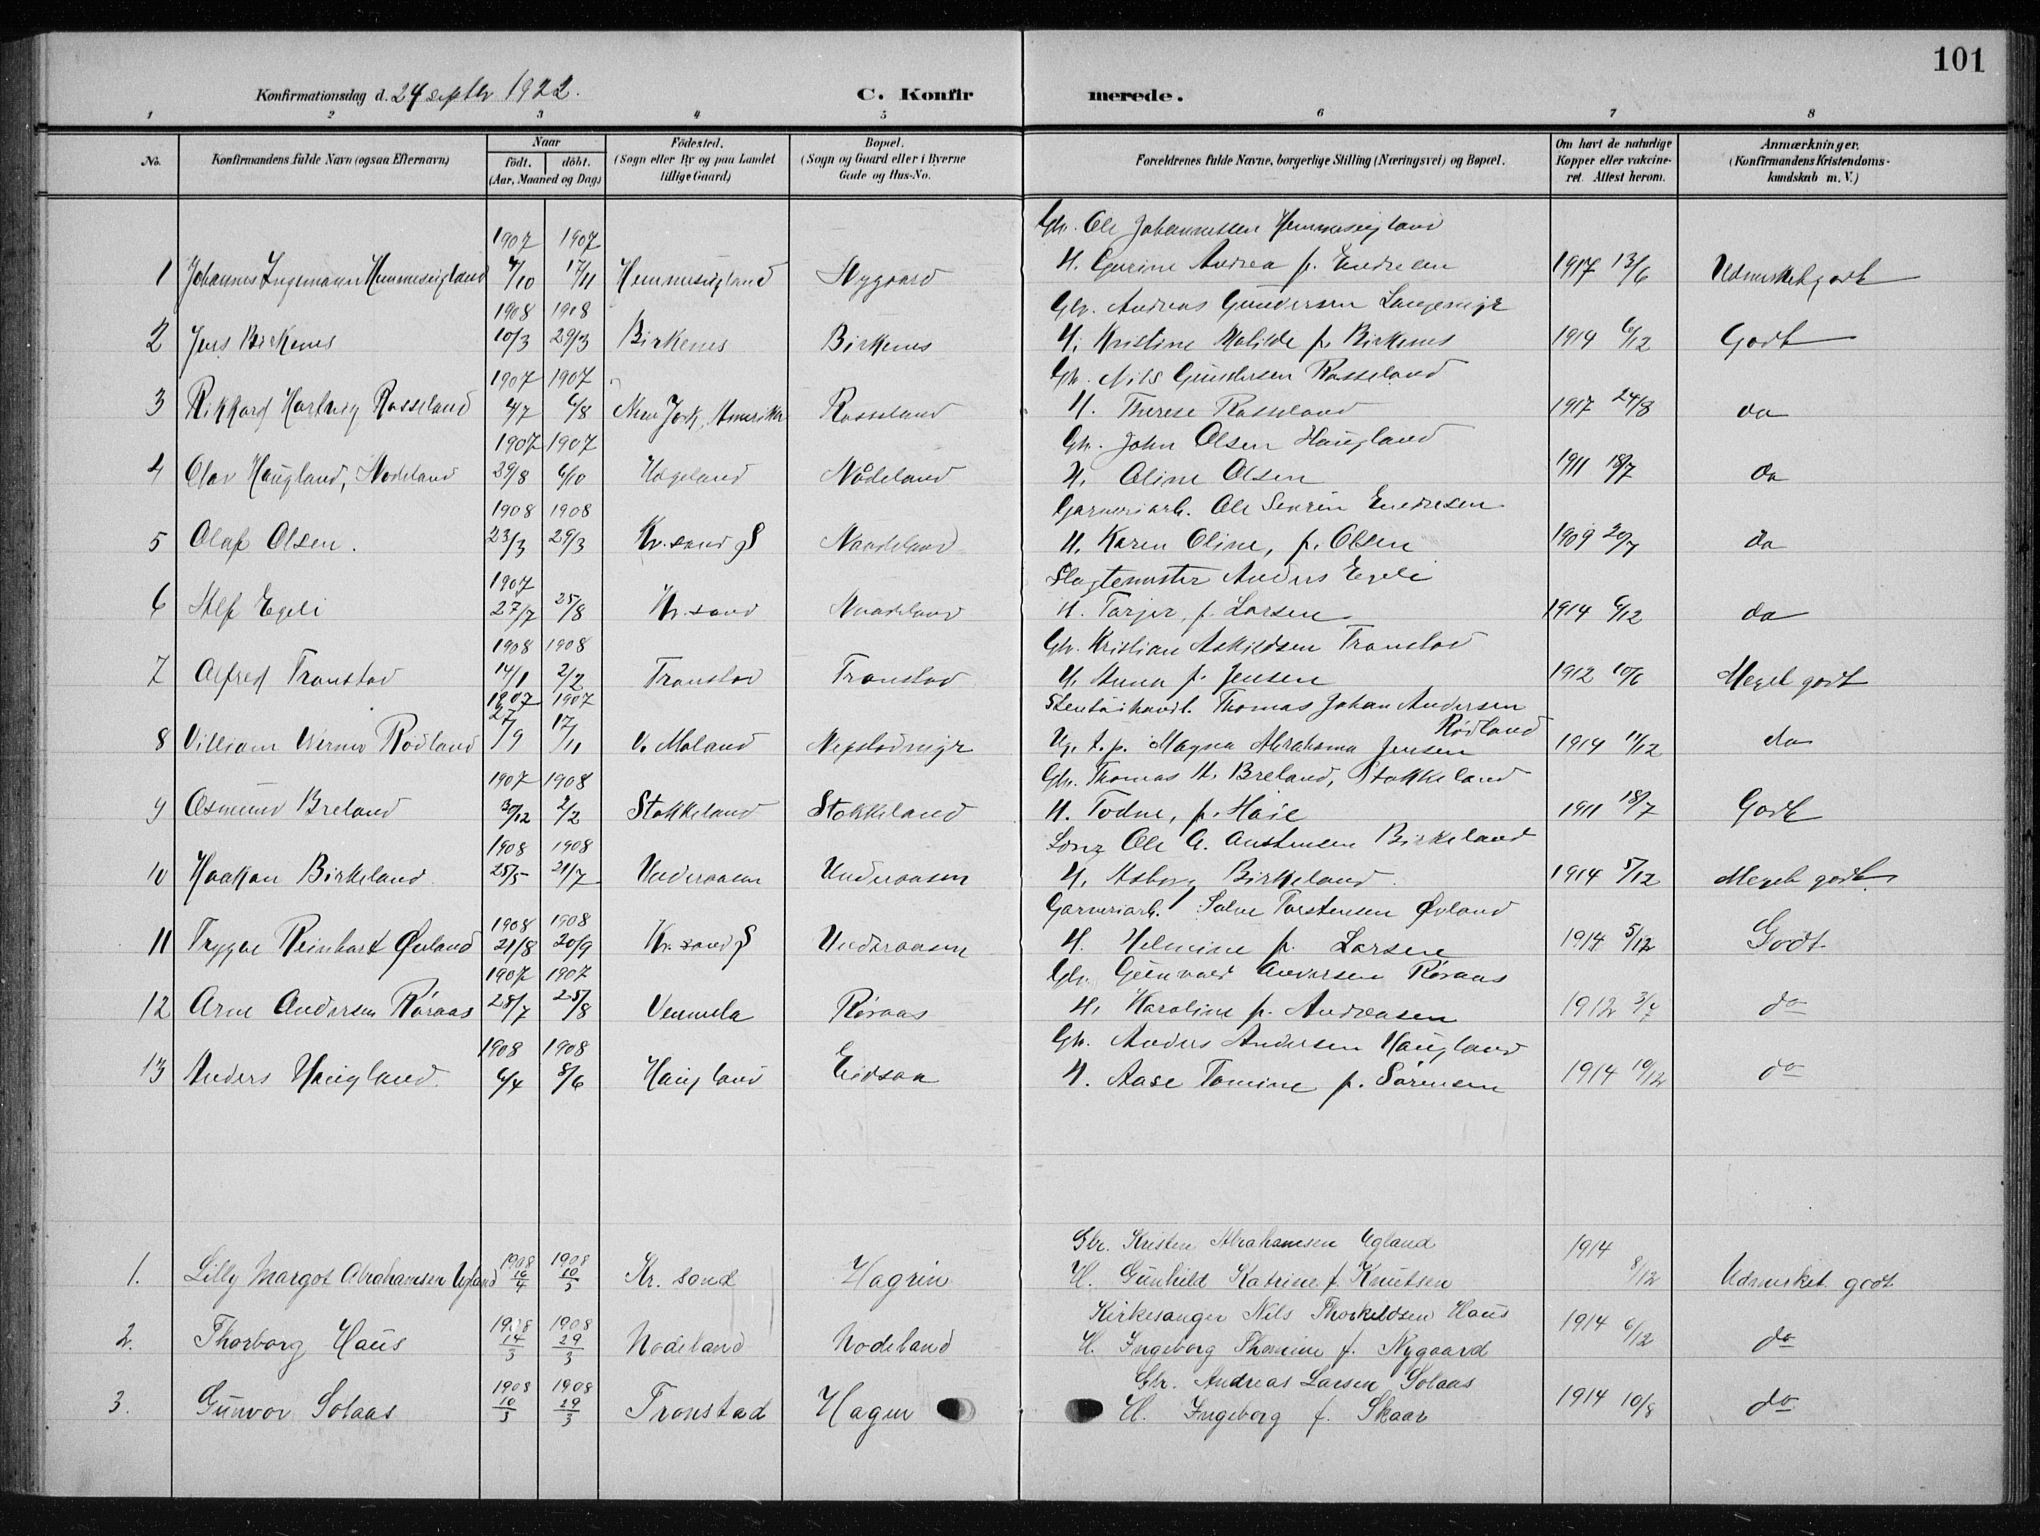 101
Konfirmationsdag d. 24 septbr 1922. C. Konfirmerede.
1 2 3 4 5 6 7 8
No. Konfirmandens fulde Navn (ogsaa Efternavn) Naar født. døbt. (Aar, Maaned og Dag) Fødested. (Sogn eller By og paa Landet tillige Gaard) Bopæl. (Sogn og Gaard eller i Byerne Gade og Hus-No. Forældrenes fulde Navne, borgerlige Stilling (Næringsvei) og Bopæl. Om havt de naturlige Kopper eller vakcineret. Attest herom. Anmærkninger. (Konfirmandens Kristendomskundskab m. V.)
1907 1907 Gbr. Ole Johannessen Hemmesigland
1 Johannes Ingemann Hemmesigland 4/10 17/11 Hemmesigland Nygaard H. Gurine Andrea f. Endresen 1917 13/6 Udmerket godt
1908 1908 Gbr. Andreas Gundersen Langemyr
2 Jens Birkenes 10/3 29/3 Birkenes Birkenes H. Kristine Matilde f. Birkenes 1914 6/12 Godt
1907 1907 Gbr. Nils Gundersen Rosseland
3 Rikkard Hartvig Rosseland 4/7 6/8 New Jork, Amerika Rosseland H. Therese Rosseland 1917 24/8 do
1907 1907 Gbr. John Olsen Haugland
4 Olav Haugland, Nodeland 29/8 6/10 Hageland Nådeland H. Oline Olsen 1911 18/7 do
1908 1908 Garveriarb. Ole Sevrin Endresen
5 Olaf Olsen. 23/3 29/3 Kr.sand S Naadeland H. Karen Oline, f. Olsen 1909 20/7 do
1907 Slagtemester Anders Egeli
6 Alf Egeli 27/7 25/8 Kr.sand Naadeland H. Tarjer, f. Larsen 1914 6/12 do
1908 1908 Gbr. Kristian Askildsen Tronstad
7 Alfred Tronstad 14/1 2/2 Tronstad Tronstad H. Anna f. Jensen 1912 10/6 Meget godt
1907 1907 Thomas Johan Andersen Rødland
8 Villiam Werner Rødland 27/9 17/11 V. Moland Nepstadmyr Ug. t. p. Magna Abrahama Jensen 1914 11/12 do
1907 1908 Gbr. Thomas H. Breland, Stokkeland
9 Osmund Breland 30/12 2/2 Stokkeland Stokkeland H. Todne, f. Haie 1911 18/7 Godt
1908 1908 Ole A. Austensen Birkeland
10 Haakon Birkeland 25/5 21/7 Underaasen Underaasen H. Asborg Birkeland. 1914 5/12 Meget godt
1908 1908 Garveriarb. Salve Torstensen Øvland
11 Trygve Reinhart Øvland 21/8 20/9 Kr.sand S Underaasen H. Helmine f. Larsen 1914 5/12 Godt
1907 1907 Gbr. Gunvald Andersen Røraas
12 Arne Andersen Røraas 28/7 25/8 Vennesla Røraas H. Karoline f. Andreasen 1912 3/7 do
1908 1908 Gbr. Anders Andersen Haugland
13 Anders Haugland. 6/4 8/6 Haugland Eidsaa H. Aase Tomine f. Sørensen 1914 10/12 do
Gbr. Kristen Abrahamsen Egland
1. Lilly Margot Abrahamsen Egland 1908 16/4 1908 10/5 Kr. sand Hagen H. Gunhild Katrine f. Knutsen 1914 8/12 Udmerket godt
Kirkesanger Nils Thorkildsen Haus
2. Thorborg Haus 1908 14/3 1908 29/3 Nodeland Nodeland H. Ingeborg Thomine f. Nygaard 1914 6/12 do
Gbr. Andreas Larsen Solaas
3. Gunvor Solaas 1908 10/3 1908 29/3 Tronstad Hagen H. Ingeborg f. Skaar 1914 10/8 do